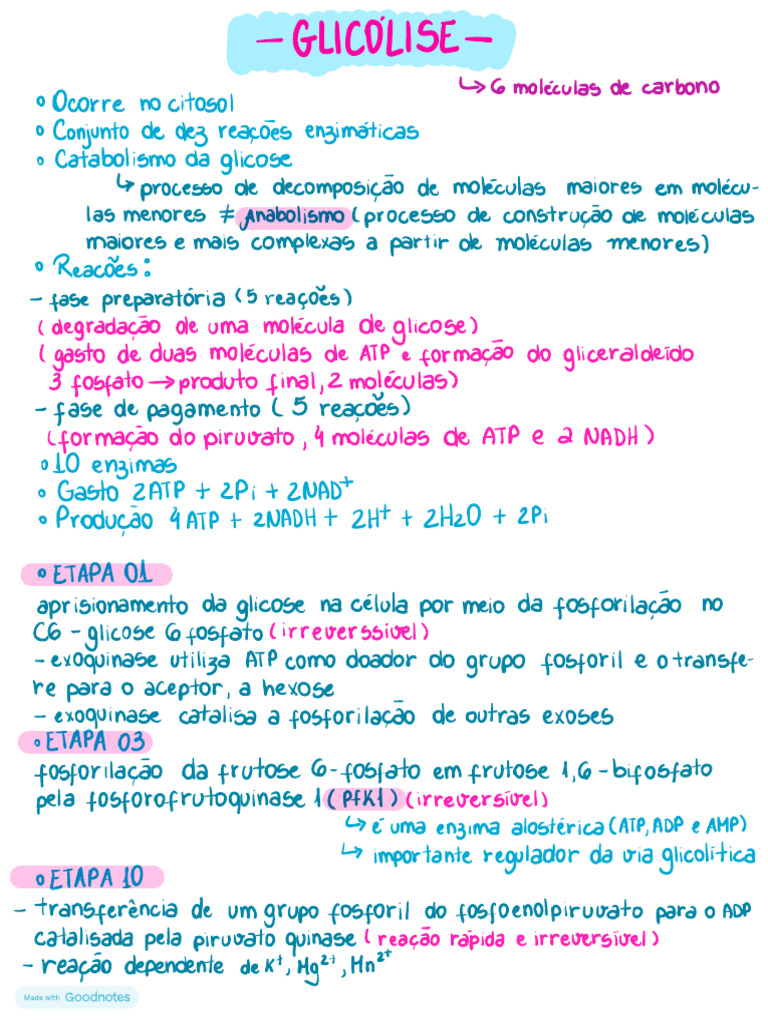 - GLICÓLISE -
↳ 6 moléculas de carbono
• Ocorre no citosol
• Conjunto de dez reações enzimáticas
• Catabolismo da glicose
↳ processo de decomposição de moléculas maiores em molécu-
las menores ≠ Anabolismo (processo de construção de moléculas
maiores e mais complexas a partir de moléculas menores)
• Reacões:
- fase preparatória (5 reações)
(degradação de uma molécula de glicose)
(gasto de duas moléculas de ATP e formação do gliceraldeído
3 fosfato → produto final, 2 moléculas)
- fase de pagamento (5 reações)
(formação do piruvato, 4 moléculas de ATP e 2 NADH)
• 10 enzimas
• Gasto 2ATP + 2Pi + 2NAD⁺
• Produção 4ATP + 2NADH + 2H⁺ + 2H2O + 2Pi
• ETAPA 01
aprisionamento da glicose na célula por meio da fosforilação no
C6 - glicose 6 fosfato (irreverssível)
- exoquinase utiliza ATP como doador do grupo fosforil e o transfe-
re para o aceptor, a hexose
- exoquinase catalisa a fosforilação de outras exoses
• ETAPA 03
fosforilação da frutose 6-fosfato em frutose 1,6-bifosfato
pela fosforofrutoquinase 1 (PfK1) (irreversível)
↳ é uma enzima alostérica (ATP, ADP e AMP)
↳ importante regulador da via glicolítica
• ETAPA 10
- transferência de um grupo fosforil do fosfoenolpiruvato para o ADP
catalisada pela piruvato quinase (reação rápida e irreversível)
- reação dependente de K⁺, Mg²⁺, Mn²⁺
Made with Goodnotes